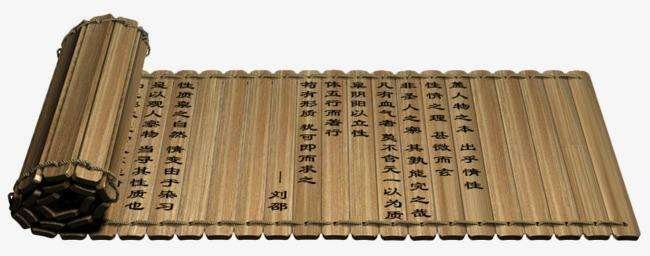 盖人物之本 出乎情性
性情之理 甚微而玄
非圣人之察 其孰能究之哉
凡有血气者 莫不含天一以为质
禀阴阳以立性
体五行而著行
苟有形质 犹可即而求之
—刘邵
性质禀之自然 情变由于染习
是以观人察物 当寻其性质也